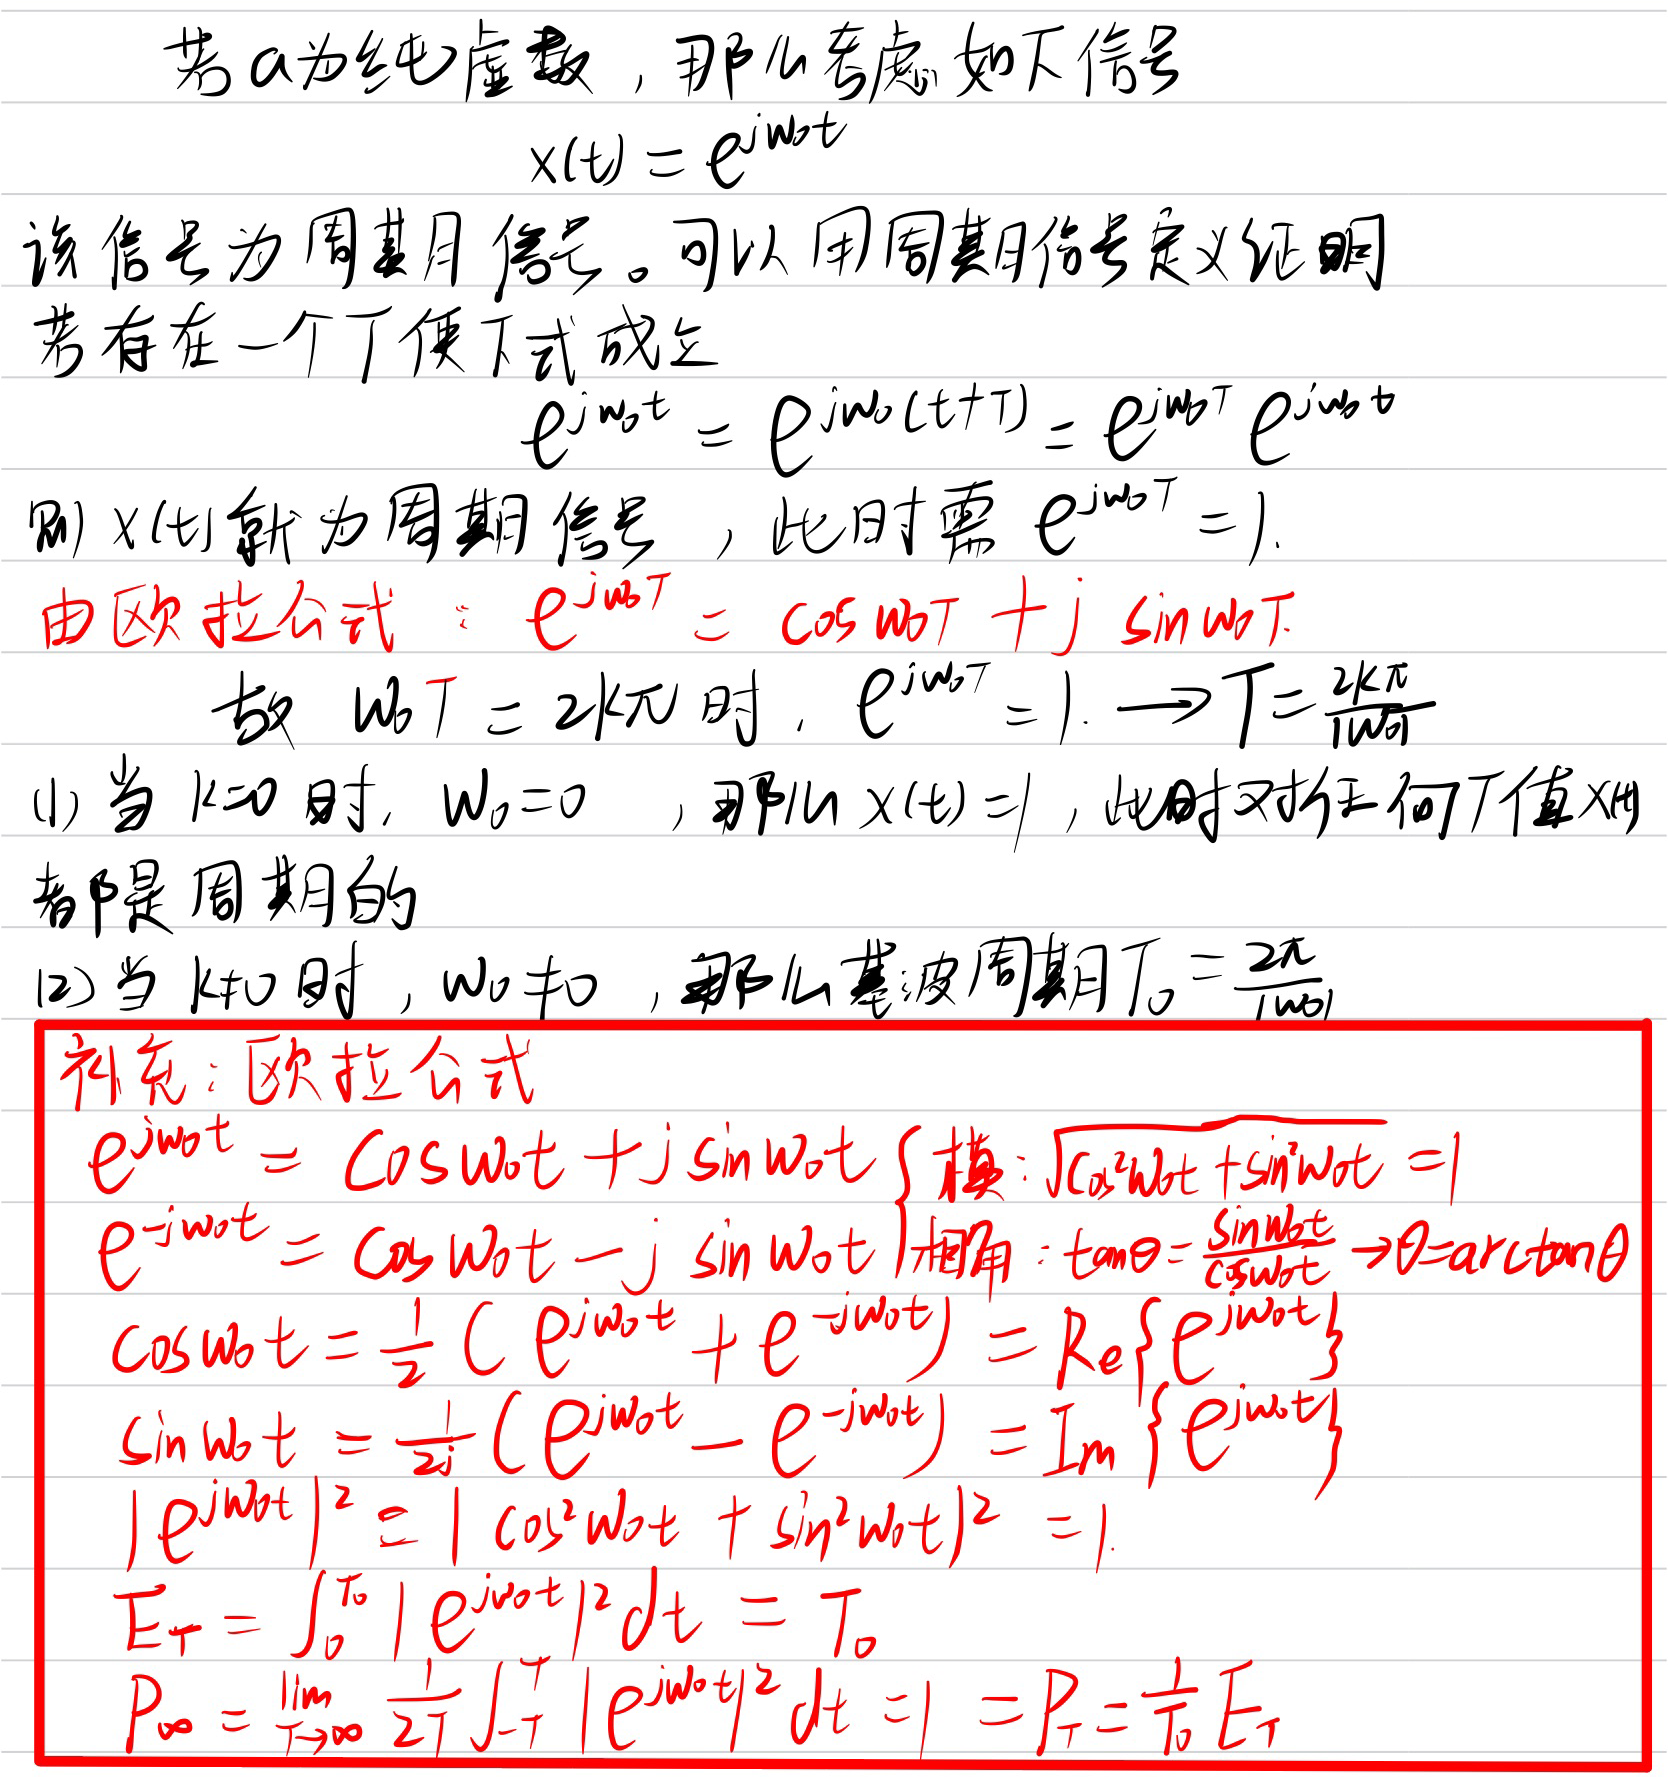 若a为纯虚数，那么考虑如下信号
x(t) = e^{jω₀t}
该信号为周期信号。可以用周期信号定义证明
若存在一个T使下式成立
e^{jω₀t} = e^{jω₀(t+T)} = e^{jω₀T} e^{jω₀t}
则x(t)就为周期信号，此时需 e^{jω₀T} = 1.
由欧拉公式：e^{jω₀T} = cosω₀T + j sinω₀T.
故 ω₀T = 2kπ 时，e^{jω₀T} = 1. → T = \frac{2kπ}{|ω₀|}
(1) 当 k=0 时，ω₀=0，那么x(t)=1，此时对任何T值x(t)
都是周期的
(2) 当 k≠0 时，ω₀≠0，那么基波周期T₀ = \frac{2π}{|ω₀|}
补充：欧拉公式
e^{jω₀t} = cosω₀t + j sinω₀t { 模：\sqrt{cos²ω₀t + sin²ω₀t} = 1
e^{-jω₀t} = cosω₀t - j sinω₀t 相角：tanθ = \frac{sinω₀t}{cosω₀t} → θ=arctanθ
cosω₀t = \frac{1}{2}(e^{jω₀t} + e^{-jω₀t}) = Re{e^{jω₀t}}
sinω₀t = \frac{1}{2j}(e^{jω₀t} - e^{-jω₀t}) = Im{e^{jω₀t}}
|e^{jω₀t}|² = |cos²ω₀t + sin²ω₀t|² = 1.
E_T = ∫_0^{T₀} |e^{jω₀t}|² dt = T₀
P_∞ = \lim_{T→∞} \frac{1}{2T} ∫_{-T}^{T} |e^{jω₀t}|² dt = 1 = P_T = \frac{1}{T₀} E_T